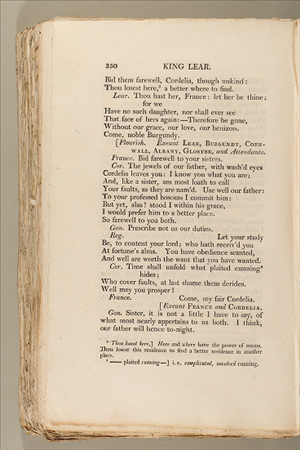 350 KING LEAR.
Bid them farewell, Cordelia, though unkind:
Thou losest here,³ a better where to find.
Lear. Thou hast her, France: let her be thine;
for we
Have no such daughter, nor shall ever see
That face of hers again:—Therefore be gone,
Without our grace, our love, our benizon.
Come, noble Burgundy.
[Flourish. Exeunt LEAR, BURGUNDY, CORN-
WALL, ALBANY, GLOSTER, and Attendants.
France. Bid farewell to your sisters.
Cor. The jewels of our father, with wash'd eyes
Cordelia leaves you: I know you what you are;
And, like a sister, am most loath to call
Your faults, as they are nam'd. Use well our father:
To your professed bosoms I commit him:
But yet, alas! stood I within his grace,
I would prefer him to a better place.
So farewell to you both.
Gon. Prescribe not us our duties.
Reg. Let your study
Be, to content your lord; who hath receiv'd you
At fortune's alms. You have obedience scanted,
And well are worth the want that you have wanted.
Cor. Time shall unfold what plaited cunning⁴
hides;
Who cover faults, at last shame them derides.
Well may you prosper!
France. Come, my fair Cordelia.
[Exeunt FRANCE and CORDELIA.
Gon. Sister, it is not a little I have to say, of
what most nearly appertains to us both. I think,
our father will hence to-night.
³ Thou losest here,] Here and where have the power of nouns.
Thou losest this residence to find a better residence in another
place.
⁴ —— plaited cunning—] i. e. complicated, involved cunning.